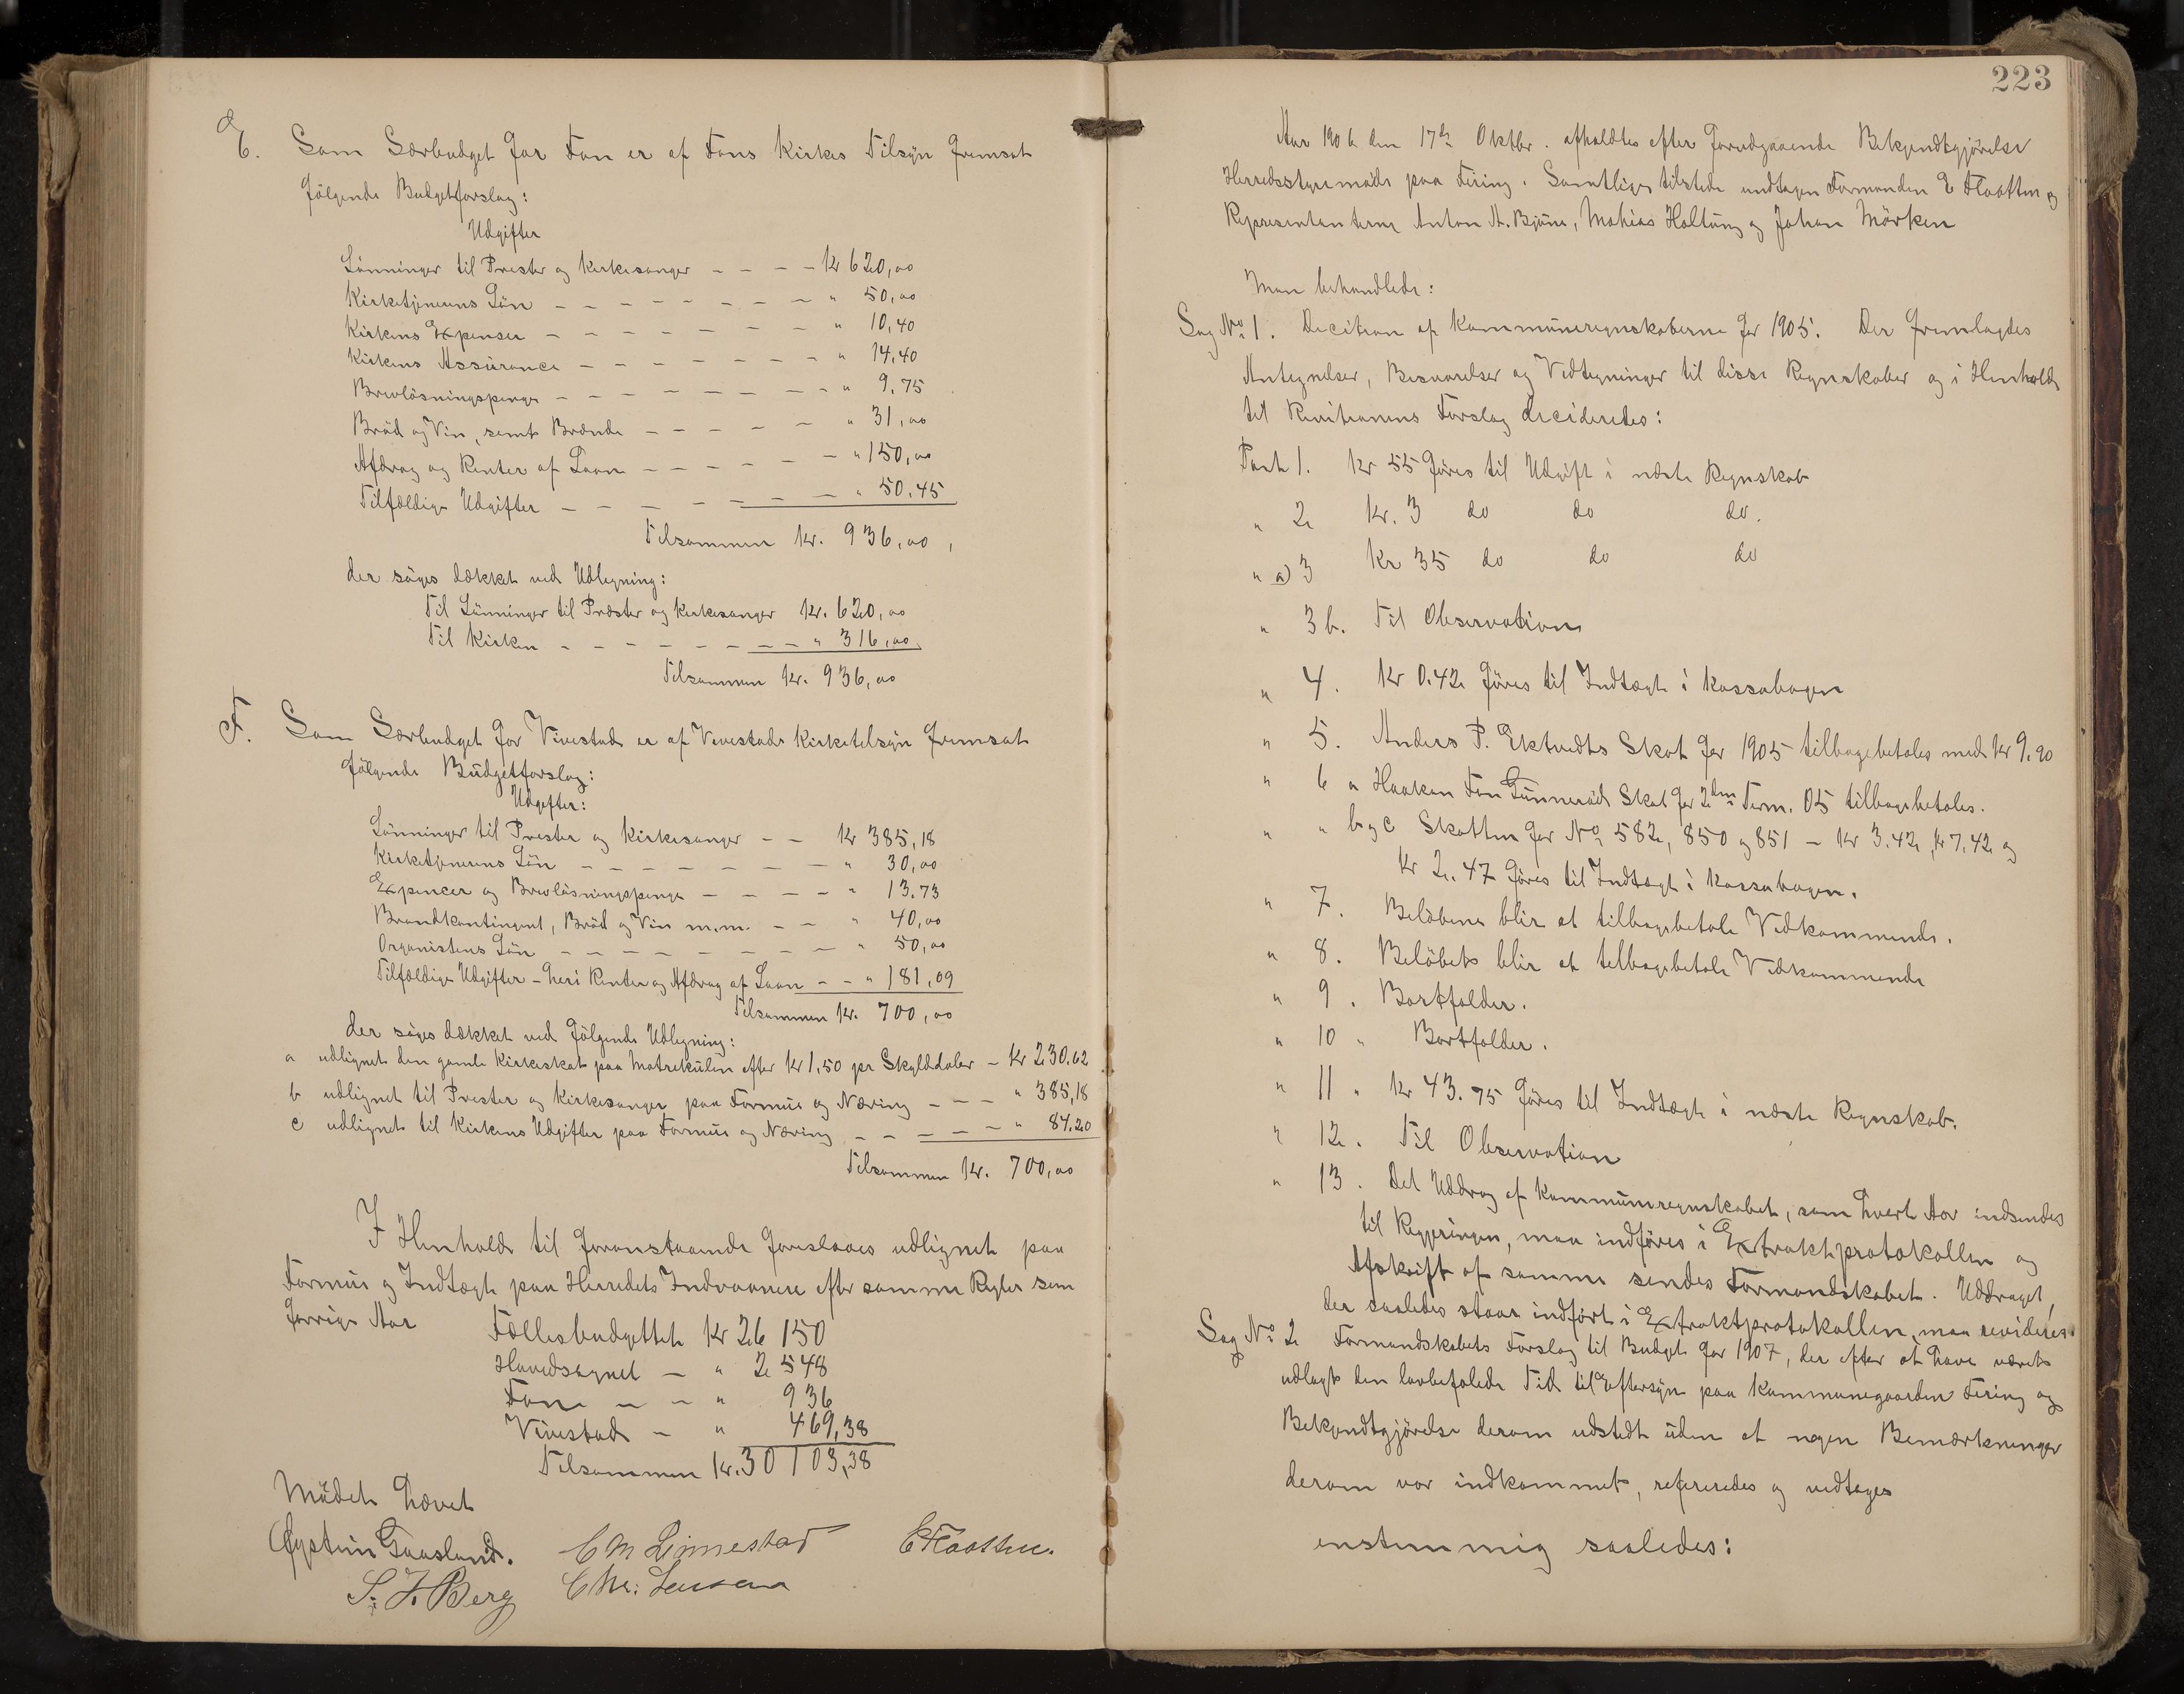 E. Som Særbudget for Fon er af Fons Kirkes Tilsyn fremsat
følgende Budgetforslag:
Udgifter
Lønninger til Prester og Kirkesanger – – – – Kr 620,00
Kirketjenerens Løn – – – – – – – – " 50,00
Kirkens Expenser – – – – – – – – " 10,40
Kirkens Assurance – – – – – – – – " 14,40
Brevløsningspenge – – – – – – – – " 9,75
Brød og Vin, samt Brænde – – – – – " 31,00
Afdrag og Renter af Laan – – – – – – " 150,00
Tilfældige Udgifter – – – – – – – " 50,45
Tilsammen Kr. 936,00,
der søges dækket ved Udligning:
Til Lønninger til Præster og Kirkesanger Kr. 620,00
Til Kirken – – – – – – – – " 316,00
Tilsammen Kr. 936,00
F. Som Særbudget for Vivestad er af Vivestads Kirketilsyn fremsat
følgende Budgetforslag:
Udgifter:
Lønninger til Prester og Kirkesanger – – Kr 385,18
Kirketjenerens Løn – – – – – – – – " 30,00
Expencer og Brevløsningspenge – – – – " 13.73
Brandkontingent, Brød og Vin m.m. – – " 40,00
Organistens Løn – – – – – – – – " 50,00
Tilfældige Udgifter – heri Renter og Afdrag af Laan – – " 181,09
Tilsammen Kr. 700,00
der søges dækket ved følgende Udligning:
a udlignet den gamle Kirkeskat paa Matrekülen efter Kr 1,50 pr Skylddaler – Kr 230,62
b udlignet til Prester og Kirkesanger paa Formue og Næring – – – " 385,18
c udlignet til Kirkens Udgifter paa Formue og Næring – – – – – " 84,20
Tilsammen Kr. 700,00
I Henhold til foranstaaende foreslaaes udlignet paa
Formue og Indtægt paa Herredets Indvaanere efter samme Regler som
forrige Aar
Fællesbudgettet Kr 26 150
Hovedsognet – " 2 548
Fon – – " 936
Vivestad – " 469,38
Tilsammen Kr. 30 103,38
Mødet hævet
Øystein Gaasland. C M Linnestad E Flaatten.
S. J. Berg C Chr. Lensen
223
Aar 1906 den 17de Oktbr. afholdtes efter forudgaaende Bekjendtgjørelse
Herredsstyremøde paa Fering. Samtlige tilstede undtagen Formanden E Flaatten og
Representanterne Anton A. Bjøne, Mathias Holtung og Johan Mørken
Man behandlede:
Sag No 1. Decition af Kommuneregnskaberne for 1905. Der fremlagdes
Antegnelser, Besvarelser og Vedtegninger til disse Regnskaber og i Henhold
til Revitionens Forslag decideredes:
Post 1. Kr 55 føres til Udgift i næste Regnskab
" 2 Kr. 3 do do do.
" a) 3 Kr 35 do do do
" 3 b. Til Observation
" 4. Kr 0.42 føres til Indtægt i Kassabogen
" 5. Anders P. Ektvedts Skat for 1905 tilbagebetales med Kr 9.90
" 6 a Haaken Fon Gunnerøds Skat for 2den Term. 05 tilbagebetales.
" " b og c Skatten for No 582, 850 og 851 – Kr 3.42, Kr 7.42 og
Kr 2.47 føres til Indtægt i Kassabogen.
" 7. Beløbene blir at tilbagebetale Vedkommende.
" 8. Beløbet blir at tilbagebetale Vedkommende
" 9. Bortfalder.
" 10 " Bortfalder.
" 11 " Kr 43.75 føres til Indtægt i næste Regnskab.
" 12. Til Observation
" 13. Det Uddrag af Kommuneregnskabet, som hvert Aar indsendes
til Regjeringen, maa indføres i Extraktprotokollen og
Afskrift af samme sendes Formandskabet. Uddraget,
der saaledes staar indført i Extraktprotokollen, maa revideres.
Sag No 2 Formandskabets Forslag til Budget for 1907, der efter at have været
udlagt den lovbefalede Tid til Eftersyn paa Kommunegaarden Fering og
Bekjendtgjørelse derom udstedt uden at nogen Bemærkninger
derom var indkommet, refereredes og vedtoges
enstemmig saaledes: